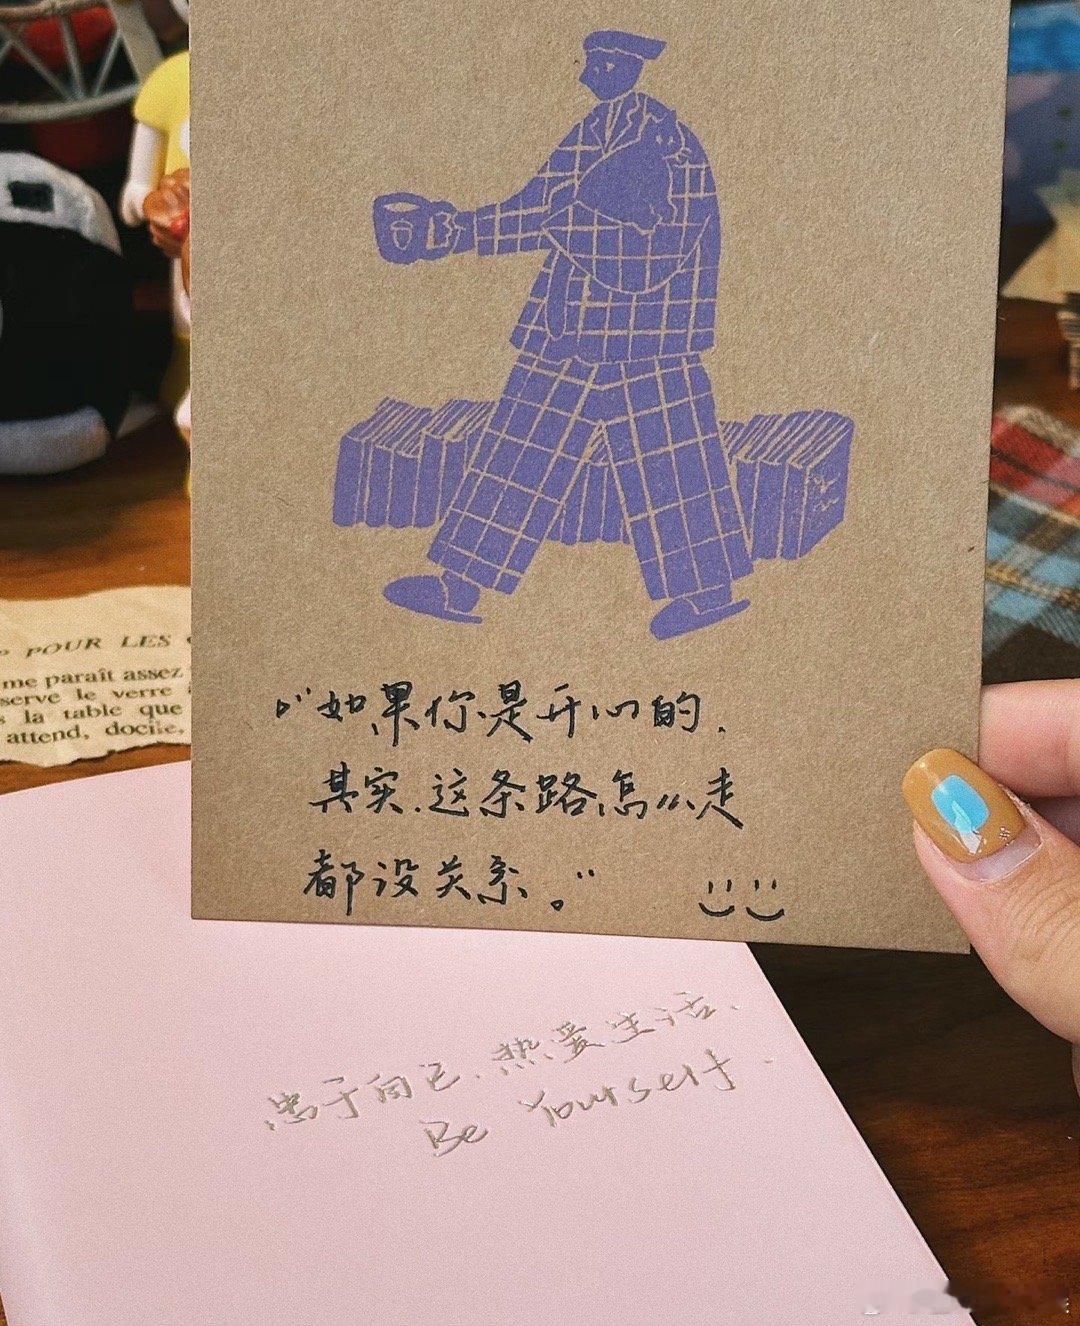 “如果你是开心的，
其实，这条路怎么走
都没关系。”
POUR LES
me paraît assez
serve le verre
la table que
attend, docile,
忠于自己、热爱生活、
Be Yourself.